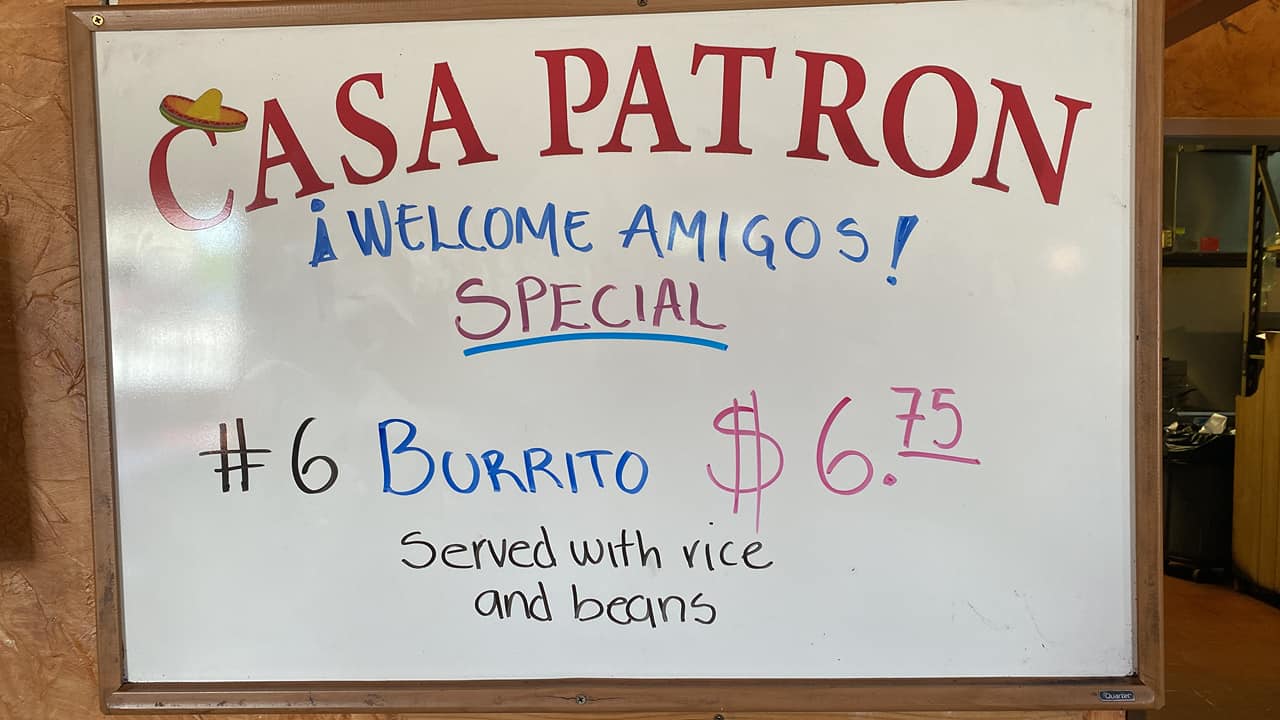 CASA PATRON
¡WELCOME AMIGOS!
SPECIAL
#6 BURRITO $6.75
Served with rice
and beans
Quartet